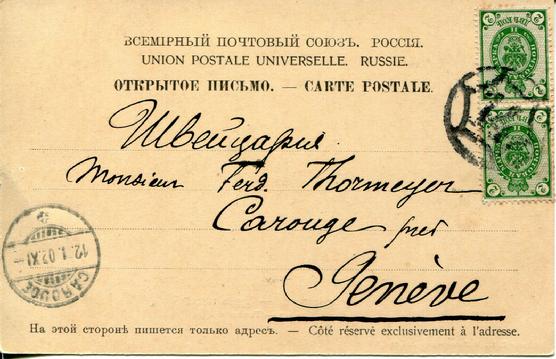 ВСЕМІРНЫЙ ПОЧТОВЫЙ СОЮЗЪ. РОССІЯ.
UNION POSTALE UNIVERSELLE. RUSSIE.
ОТКРЫТОЕ ПИСЬМО. — CARTE POSTALE.
Швейцария
Monsieur Ferd. Thormeyer
Carouge près
Genève
12.1.02.XI
CAROUGE
На этой сторонѣ пишется только адресъ. — Côté réservé exclusivement à l'adresse.